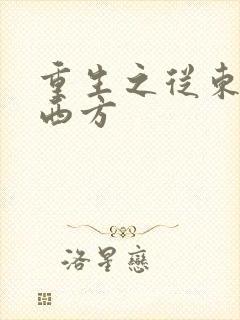 重生之從東
西方
洛星戀